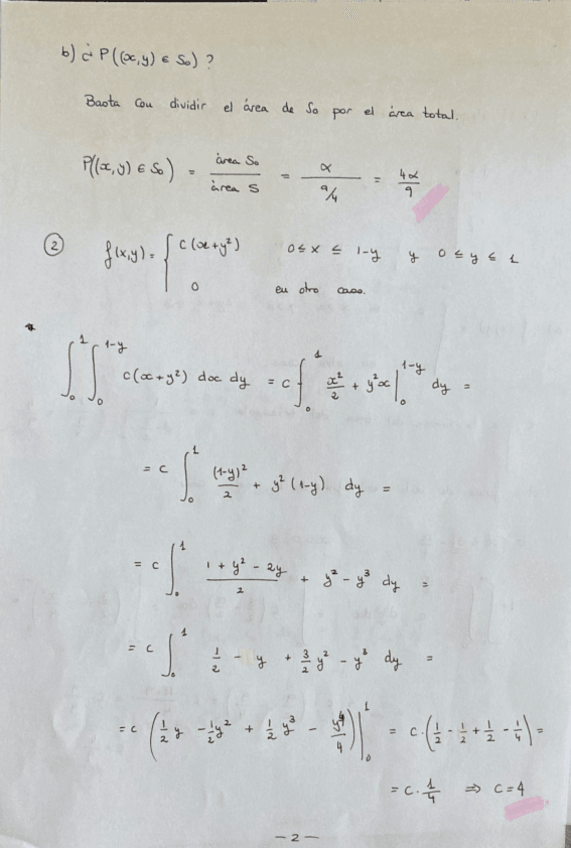 b) ¿ P((x,y) ∈ S₀) ?
Basta con dividir el área de S₀ por el área total.
P((x,y) ∈ S₀) = área S₀ / área S = α / (9/4) = 4α/9
② f(x,y) = { c(x+y²)   0 ≤ x ≤ 1-y   y   0 ≤ y ≤ 1
0   en otro caso.
∫₀¹ ∫₀^(1-y) c(x+y²) dx dy = c ∫₀¹ x²/2 + y²x |₀^(1-y) dy =
= c ∫₀¹ (1-y)²/2 + y²(1-y) dy =
= c ∫₀¹ (1+y²-2y)/2 + y² - y³ dy =
= c ∫₀¹ 1/2 - y + 3/2 y² - y³ dy =
= c · (1/2 y - 1/2 y² + 1/2 y³ - y⁴/4) |₀¹ = c · (1/2 - 1/2 + 1/2 - 1/4) =
= c · 1/4 ⇒ c = 4
- 2 -